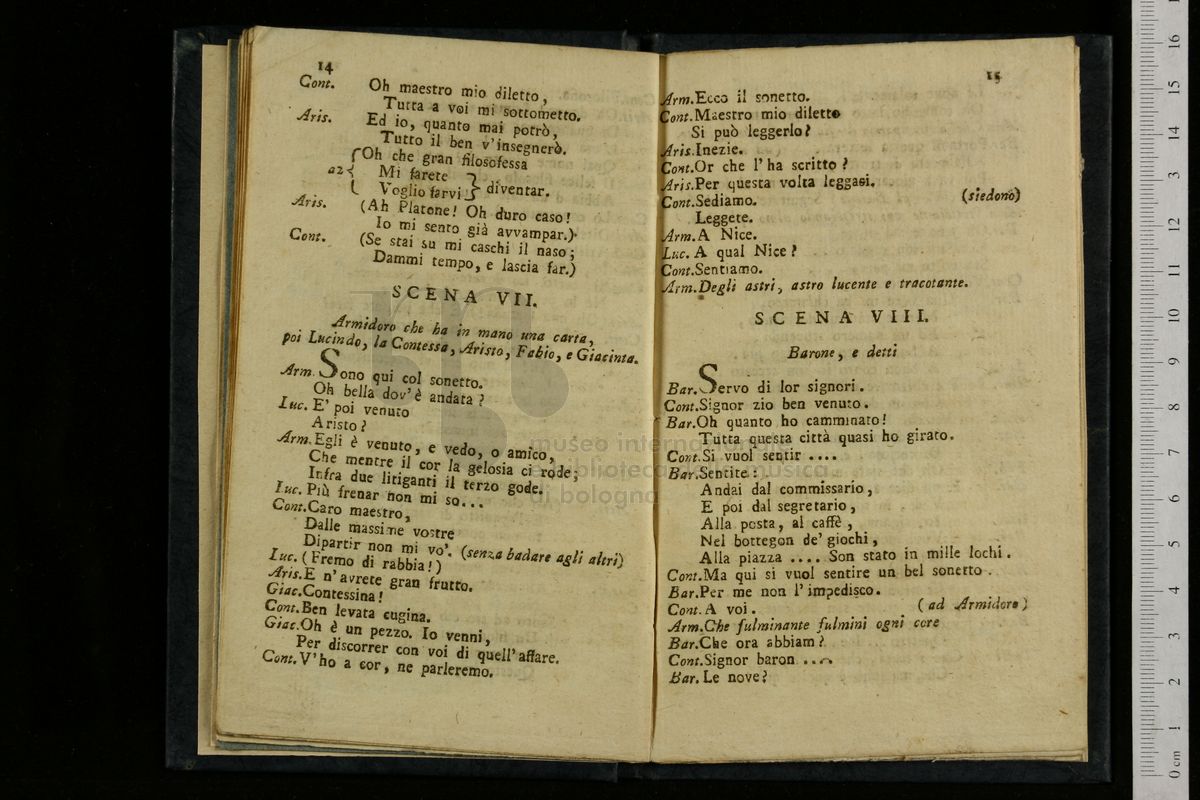 14
Cont. Oh maestro mio diletto,
Tutta a voi mi sottometto.
Aris. Ed io, quanto mai potrò,
Tutto il ben v'insegnerò.
a2 Oh che gran filosofessa
Mi farete
Voglio farvi } diventar.
Aris. (Ah Platone! Oh duro caso!
Io mi sento già avvampar.)
Cont. (Se stai su mi caschi il naso;
Dammi tempo, e lascia far.)
SCENA VII.
Armidoro che ha in mano una carta,
poi Lucindo, la Contessa, Aristo, Fabio, e Giacinta.
Arm. Sono qui col sonetto.
Oh bella dov'è andata?
Luc. E' poi venuto
Aristo?
Arm. Egli è venuto, e vedo, o amico,
Che mentre il cor la gelosia ci rode;
Infra due litiganti il terzo gode.
Luc. Più frenar non mi so...
Cont. Caro maestro,
Dalle massime vostre
Dipartir non mi vo'. (senza badare agli altri)
Luc. (Fremo di rabbia!)
Aris. E n'avrete gran frutto.
Giac. Contessina!
Cont. Ben levata cugina.
Giac. Oh è un pezzo. Io venni,
Per discorrer con voi di quell'affare.
Cont. V'ho a cor, ne parleremo.
15
Arm. Ecco il sonetto.
Cont. Maestro mio diletto
Si può leggerlo?
Aris. Inezie.
Cont. Or che l'ha scritto?
Aris. Per questa volta leggasi.
Cont. Sediamo. (siedono)
Leggete.
Arm. A Nice.
Luc. A qual Nice?
Cont. Sentiamo.
Arm. Degli astri, astro lucente e tracotante.
SCENA VIII.
Barone, e detti
Bar. Servo di lor signori.
Cont. Signor zio ben venuto.
Bar. Oh quanto ho camminato!
Tutta questa città quasi ho girato.
Cont. Si vuol sentir ....
Bar. Sentite:
Andai dal commissario,
E poi dal segretario,
Alla posta, al caffè,
Nel bottegon de' giochi,
Alla piazza .... Son stato in mille lochi.
Cont. Ma qui si vuol sentire un bel sonetto.
Bar. Per me non l'impedisco.
Cont. A voi. (ad Armidoro)
Arm. Che fulminante fulmini ogni core
Bar. Che ora abbiam?
Cont. Signor baron ....
Bar. Le nove?
museo internazionale
e biblioteca della musica
di bologna
0 cm 1 2 3 4 5 6 7 8 9 10 11 12 13 14 15 16